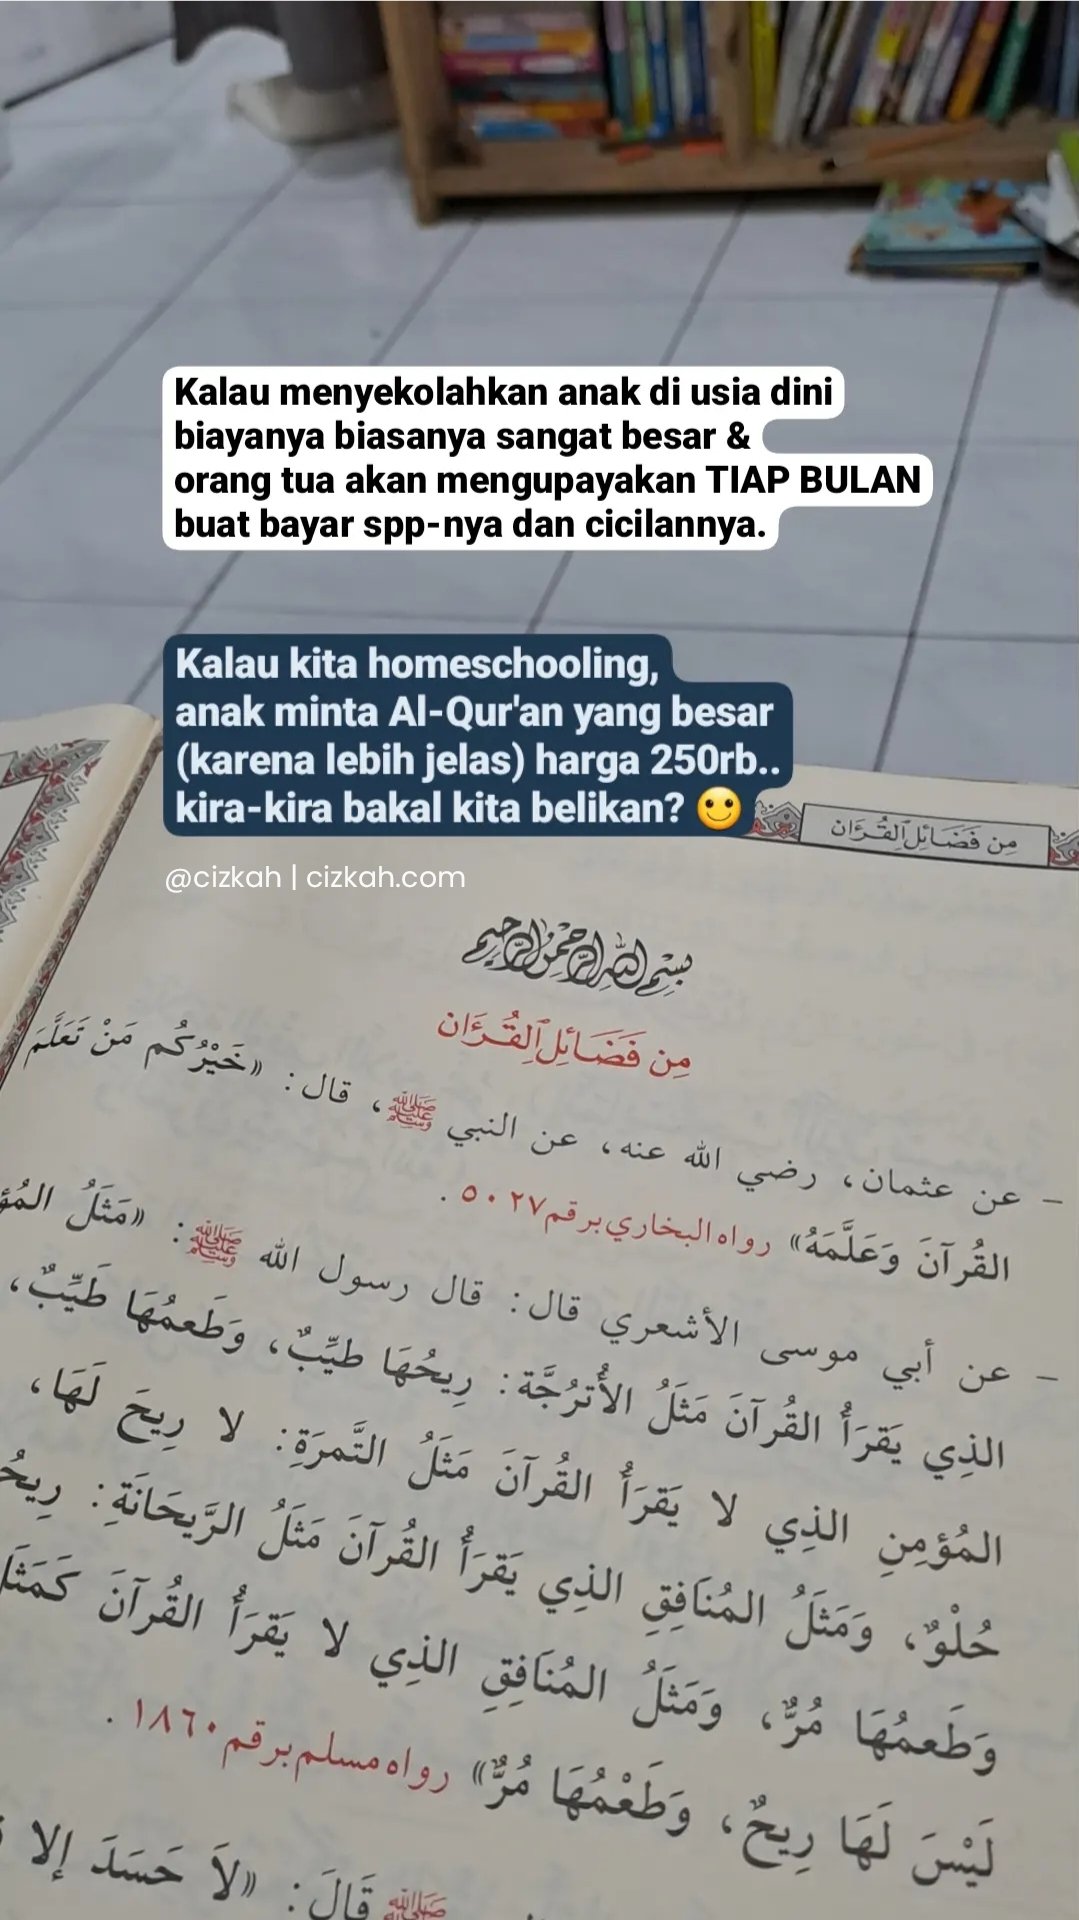 Kalau menyekolahkan anak di usia dini
biayanya biasanya sangat besar &
orang tua akan mengupayakan TIAP BULAN
buat bayar spp-nya dan cicilannya.
Kalau kita homeschooling,
anak minta Al-Qur'an yang besar
(karena lebih jelas) harga 250rb..
kira-kira bakal kita belikan? 🙂
@cizkah | cizkah.com
مِن فَضَائِلِ ٱلقُرَءَان
بِسْمِ اللهِ الرَّحْمٰنِ الرَّحِيمِ
مِن فَضَائِلِ ٱلقُرَءَان
- عن عثمان، رضي الله عنه، عن النبي ﷺ، قال: «خَيْرُكُم مَنْ تَعَلَّمَ
القُرآنَ وَعَلَّمَهُ» رواه البخاري برقم ٥٠٢٧.
- عن أبي موسى الأشعري قال: قال رسول الله ﷺ: «مَثَلُ
الذِي يَقرَأُ القُرآنَ مَثَلُ الأُترُجَّة: رِيحُهَا طيِّبٌ، وَطَعمُهَا طَيِّبٌ،
المُؤمِنِ الذِي لا يَقرَأُ القُرآنَ مَثَلُ التَّمرَةِ: لا رِيحَ لَهَا،
حُلْوٌ، وَمَثَلُ المُنَافِقِ الذِي يَقرَأُ القُرآنَ مَثَلُ الرَّيحَانَةِ:
وَطَعمُهَا مُرٌّ، وَمَثَلُ المُنَافِقِ الذِي لا يَقرَأُ القُرآنَ
لَيْسَ لَهَا رِيحٌ، وَطَعْمُهَا مُرٌّ» رواه مسلم برقم ١٨٦٠.
ﷺ قَالَ: «لَا حَسَدَ إلا